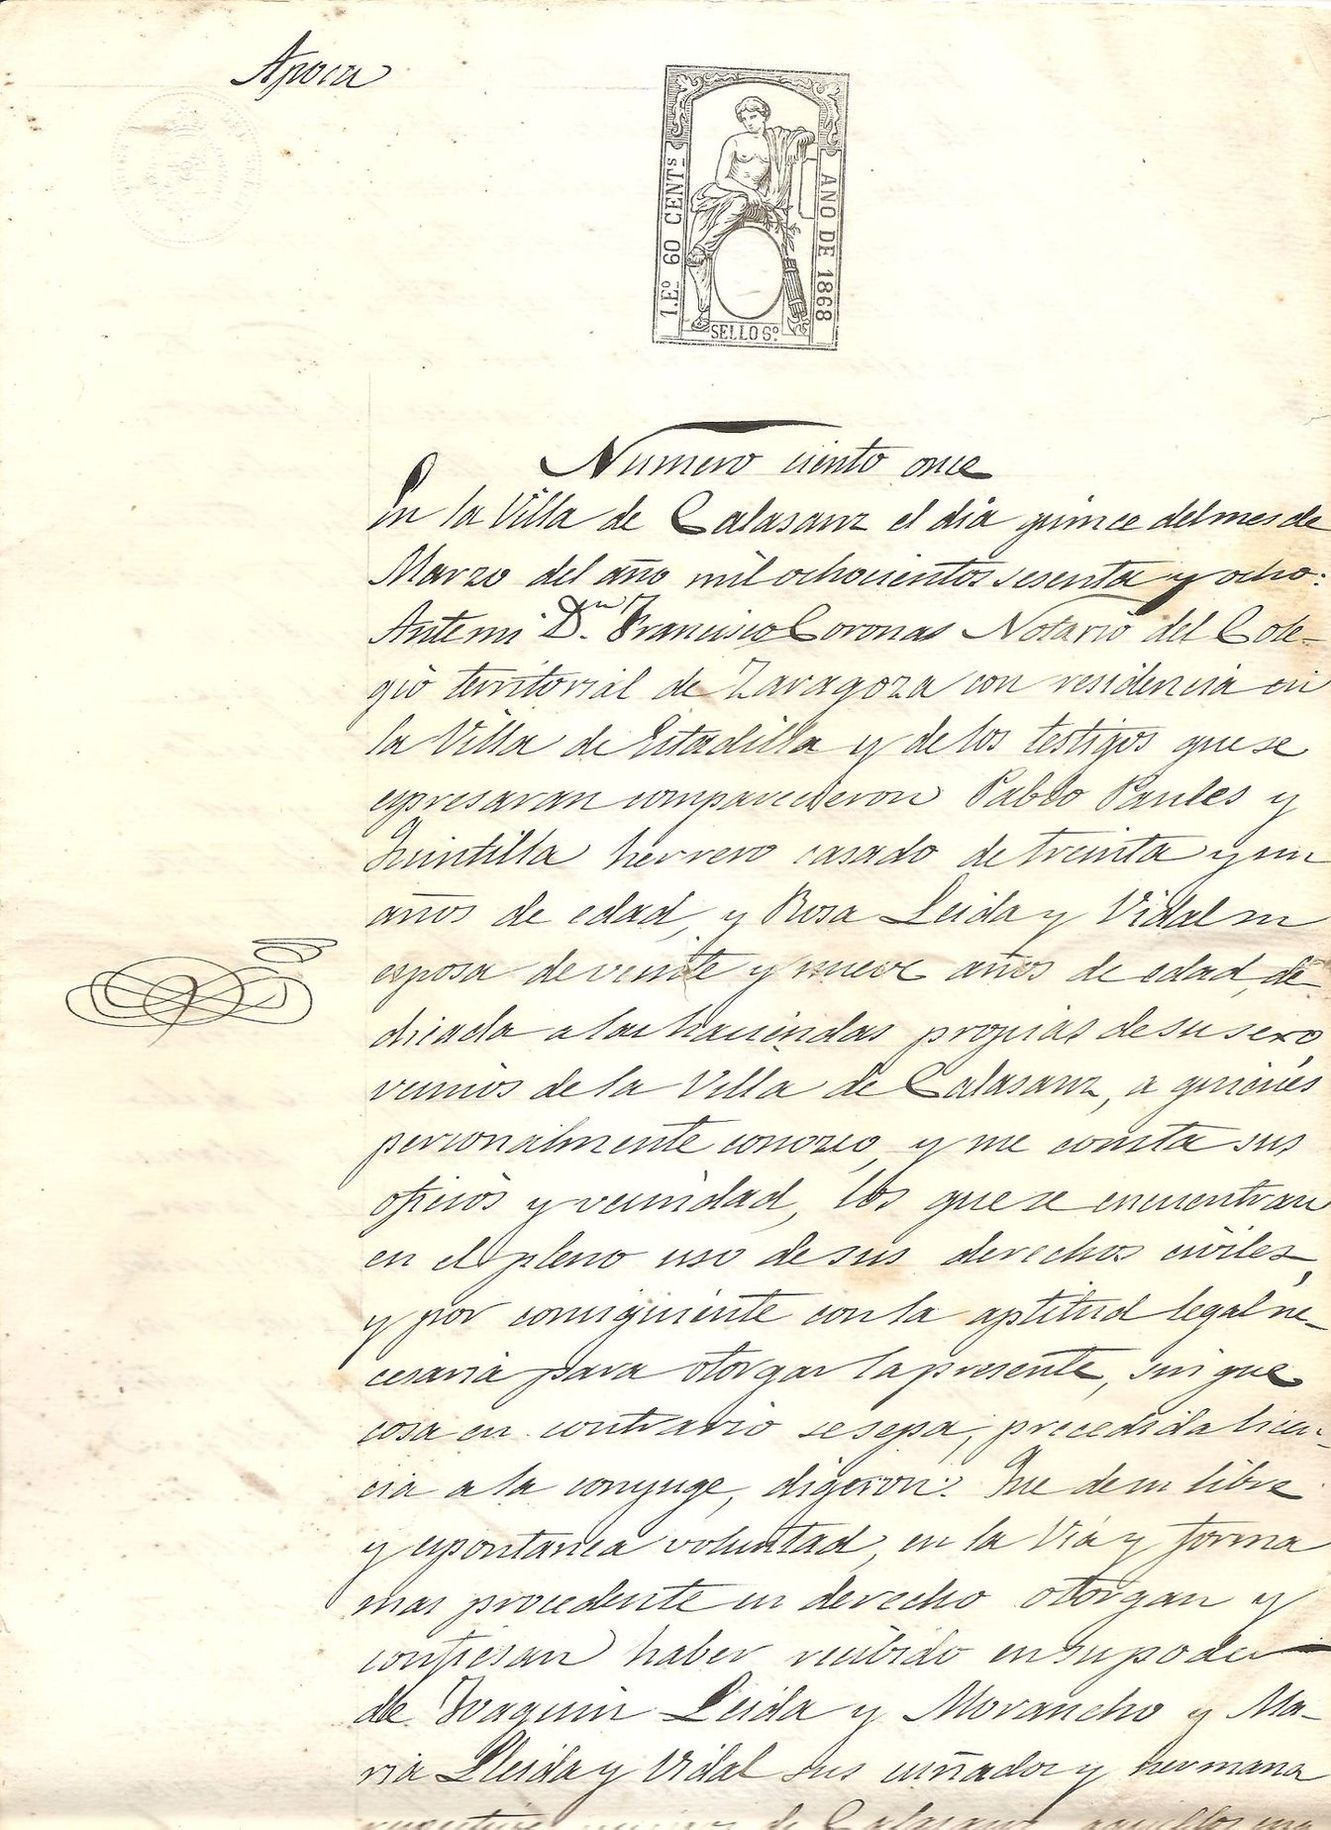 Apoca
1.Eº 60 CENTS
AÑO DE 1868
SELLO 9º
Numero ciento once
En la Villa de Calasanz el dia quince del mes de
Marzo del año mil ochocientos sesenta y ocho:
Ante mi Dn. Francisco Coronas Notario del Cole-
gio territorial de Zaragoza con residencia en
la Villa de Estadilla y de los testigos que se
espresaran comparecieron Pablo Paules y
Quintilla herrero casado de treinta y un
años de edad, y Rosa Leida y Vidal su
esposa de veinte y nueve años de edad, de
dicada a las haciendas propias de su sexo,
vecinos de la Villa de Calasanz, a quienes
personalmente conozco, y me consta sus
oficios y vecindad, los que se encuentran
en el pleno uso de sus derechos civiles,
y por consiguiente con la aptitud legal ne-
cesaria para otorgar la presente, sin que
cosa en contrario se sepa, precedida licen-
cia a la conyuge, digeron: Que de su libre
y espontanea voluntad, en la Via y forma
mas procedente en derecho otorgan y
confiesan haber recibido en su poder
de Joaquin Leida y Morancho y Ma-
ria Lleida y Vidal sus cuñador y hermana
de Calasanz